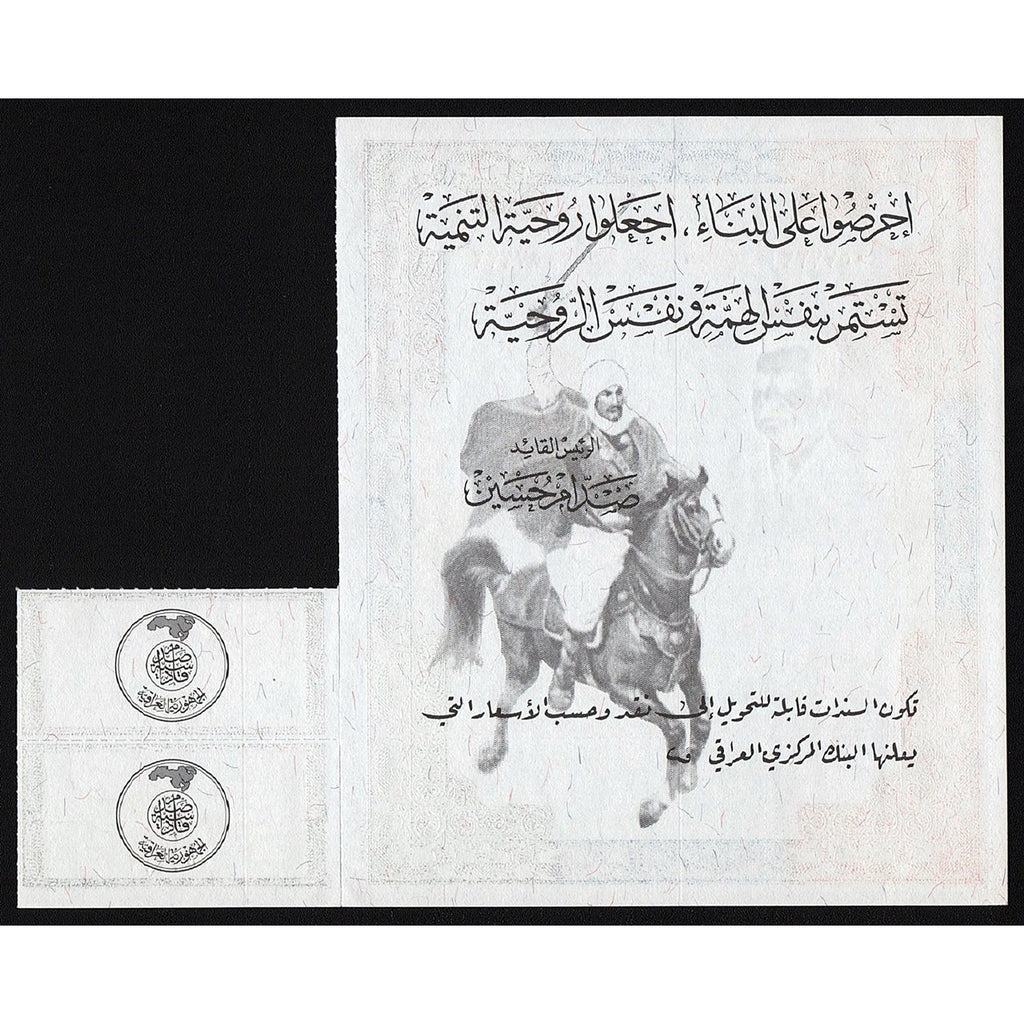 إحْرِصُوا عَلَى البْنَاءِ ، اجعَلوا رُوحيَّة التنميَة
تَسْتمرّ بنفسِ الهِمَّةِ ونفسِ الرّوُحيَّة
الرئيس القائد
صَدّام حُسَين
تكون السندات قابلة للتحويل إلى نقد وحسب الأسعار التي
يعلنها البنك المركزي العراقي
صدام
قادسية
الجمهورية العراقية
صدام
قادسية
الجمهورية العراقية